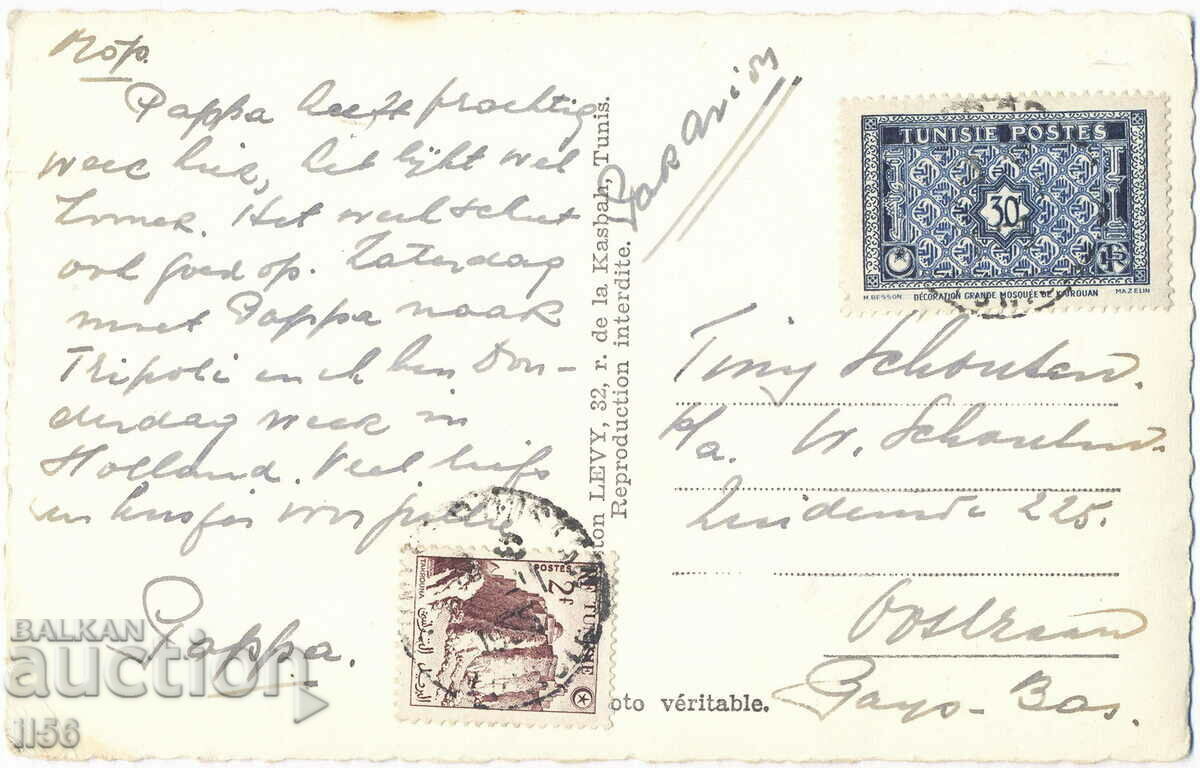 Pappa heeft prachtig
weer hier, het lijkt wel
Zomer. Het werk schiet
ook goed op. Zaterdag
moet Pappa naar
Tripoli en ik ben Don-
derdag week in
Holland. Veel liefs
en kusjes voor jullie
Pappa.
Par avion
ton LEVY, 32, r. de la Kasbah, Tunis.
Reproduction interdite.
oto véritable.
TUNISIE POSTES
30
H. BESSON DÉCORATION GRANDE MOSQUÉE DE KAIROUAN MAZELIN
Tiny Schouten.
p/a. W. Schouten
225.
Oostzaan
Pays-Bas.
POSTES
2F
TAKROUNA
TUNISIE
BALKAN
auction
1156